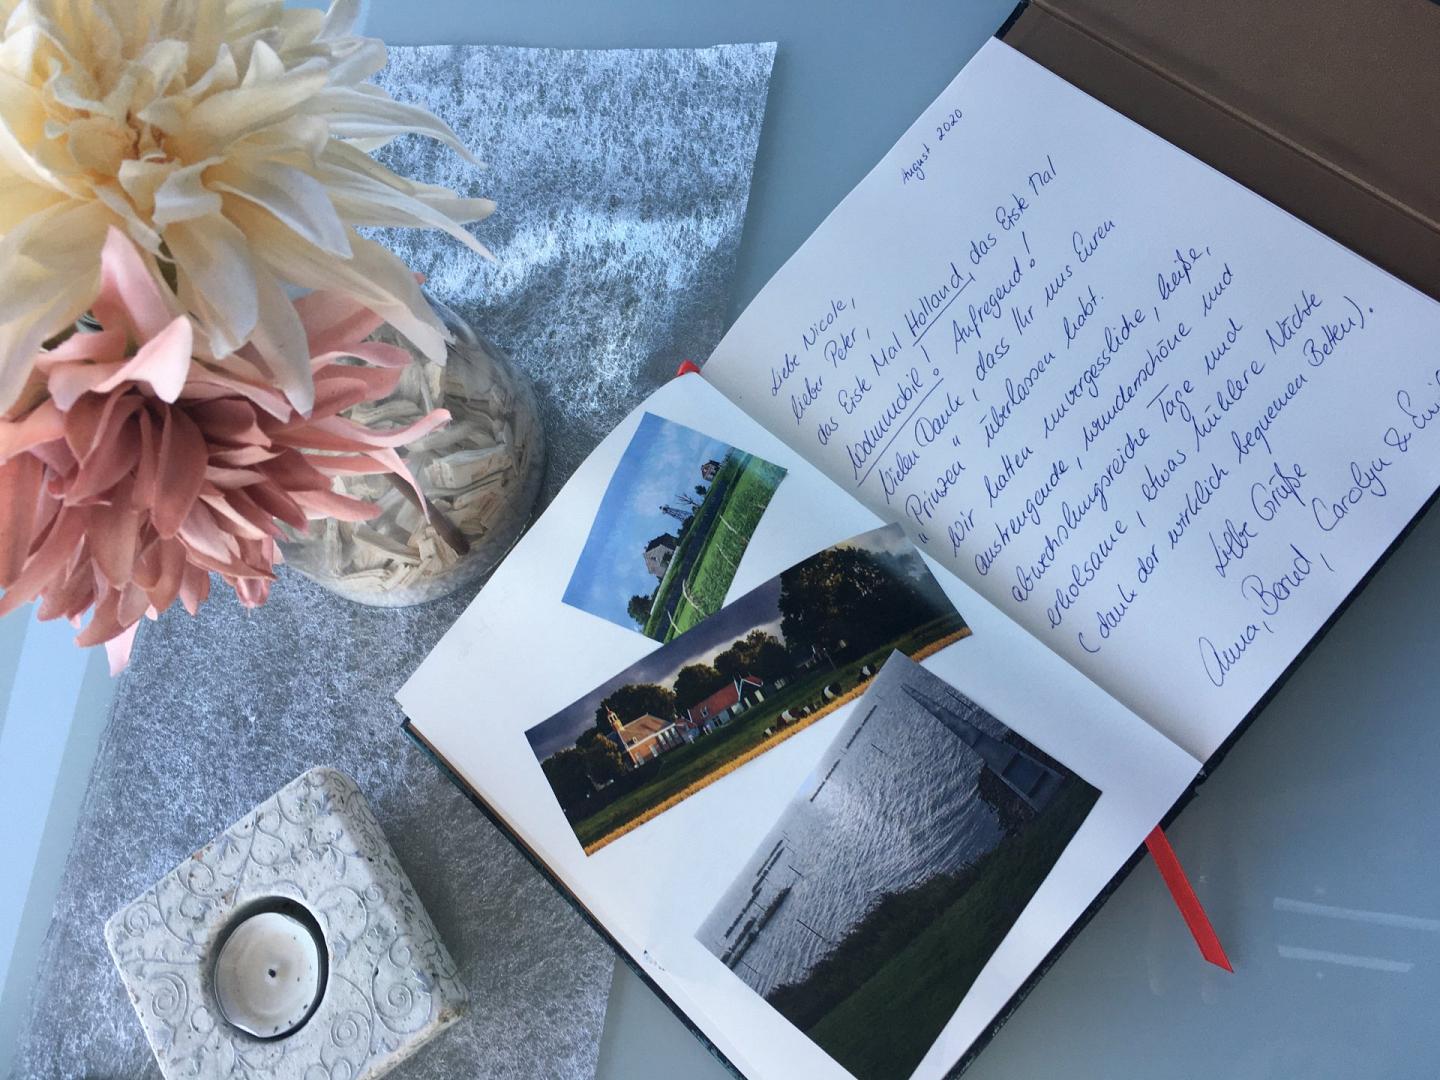 August 2020
Liebe Nicole,
lieber Peter,
das Erste Mal Holland, das Erste Mal
Wohnmobil! Aufregend!
Vielen Dank, dass Ihr uns Euren
"Prinzen" überlassen habt.
Wir hatten unvergessliche, heiße,
anstrengende, wunderschöne und
abwechslungsreiche Tage und
erholsame, etwas kühlere Nächte
(dank der wirklich bequemen Betten).
Liebe Grüße
Anna, Bernd, Carolyn &